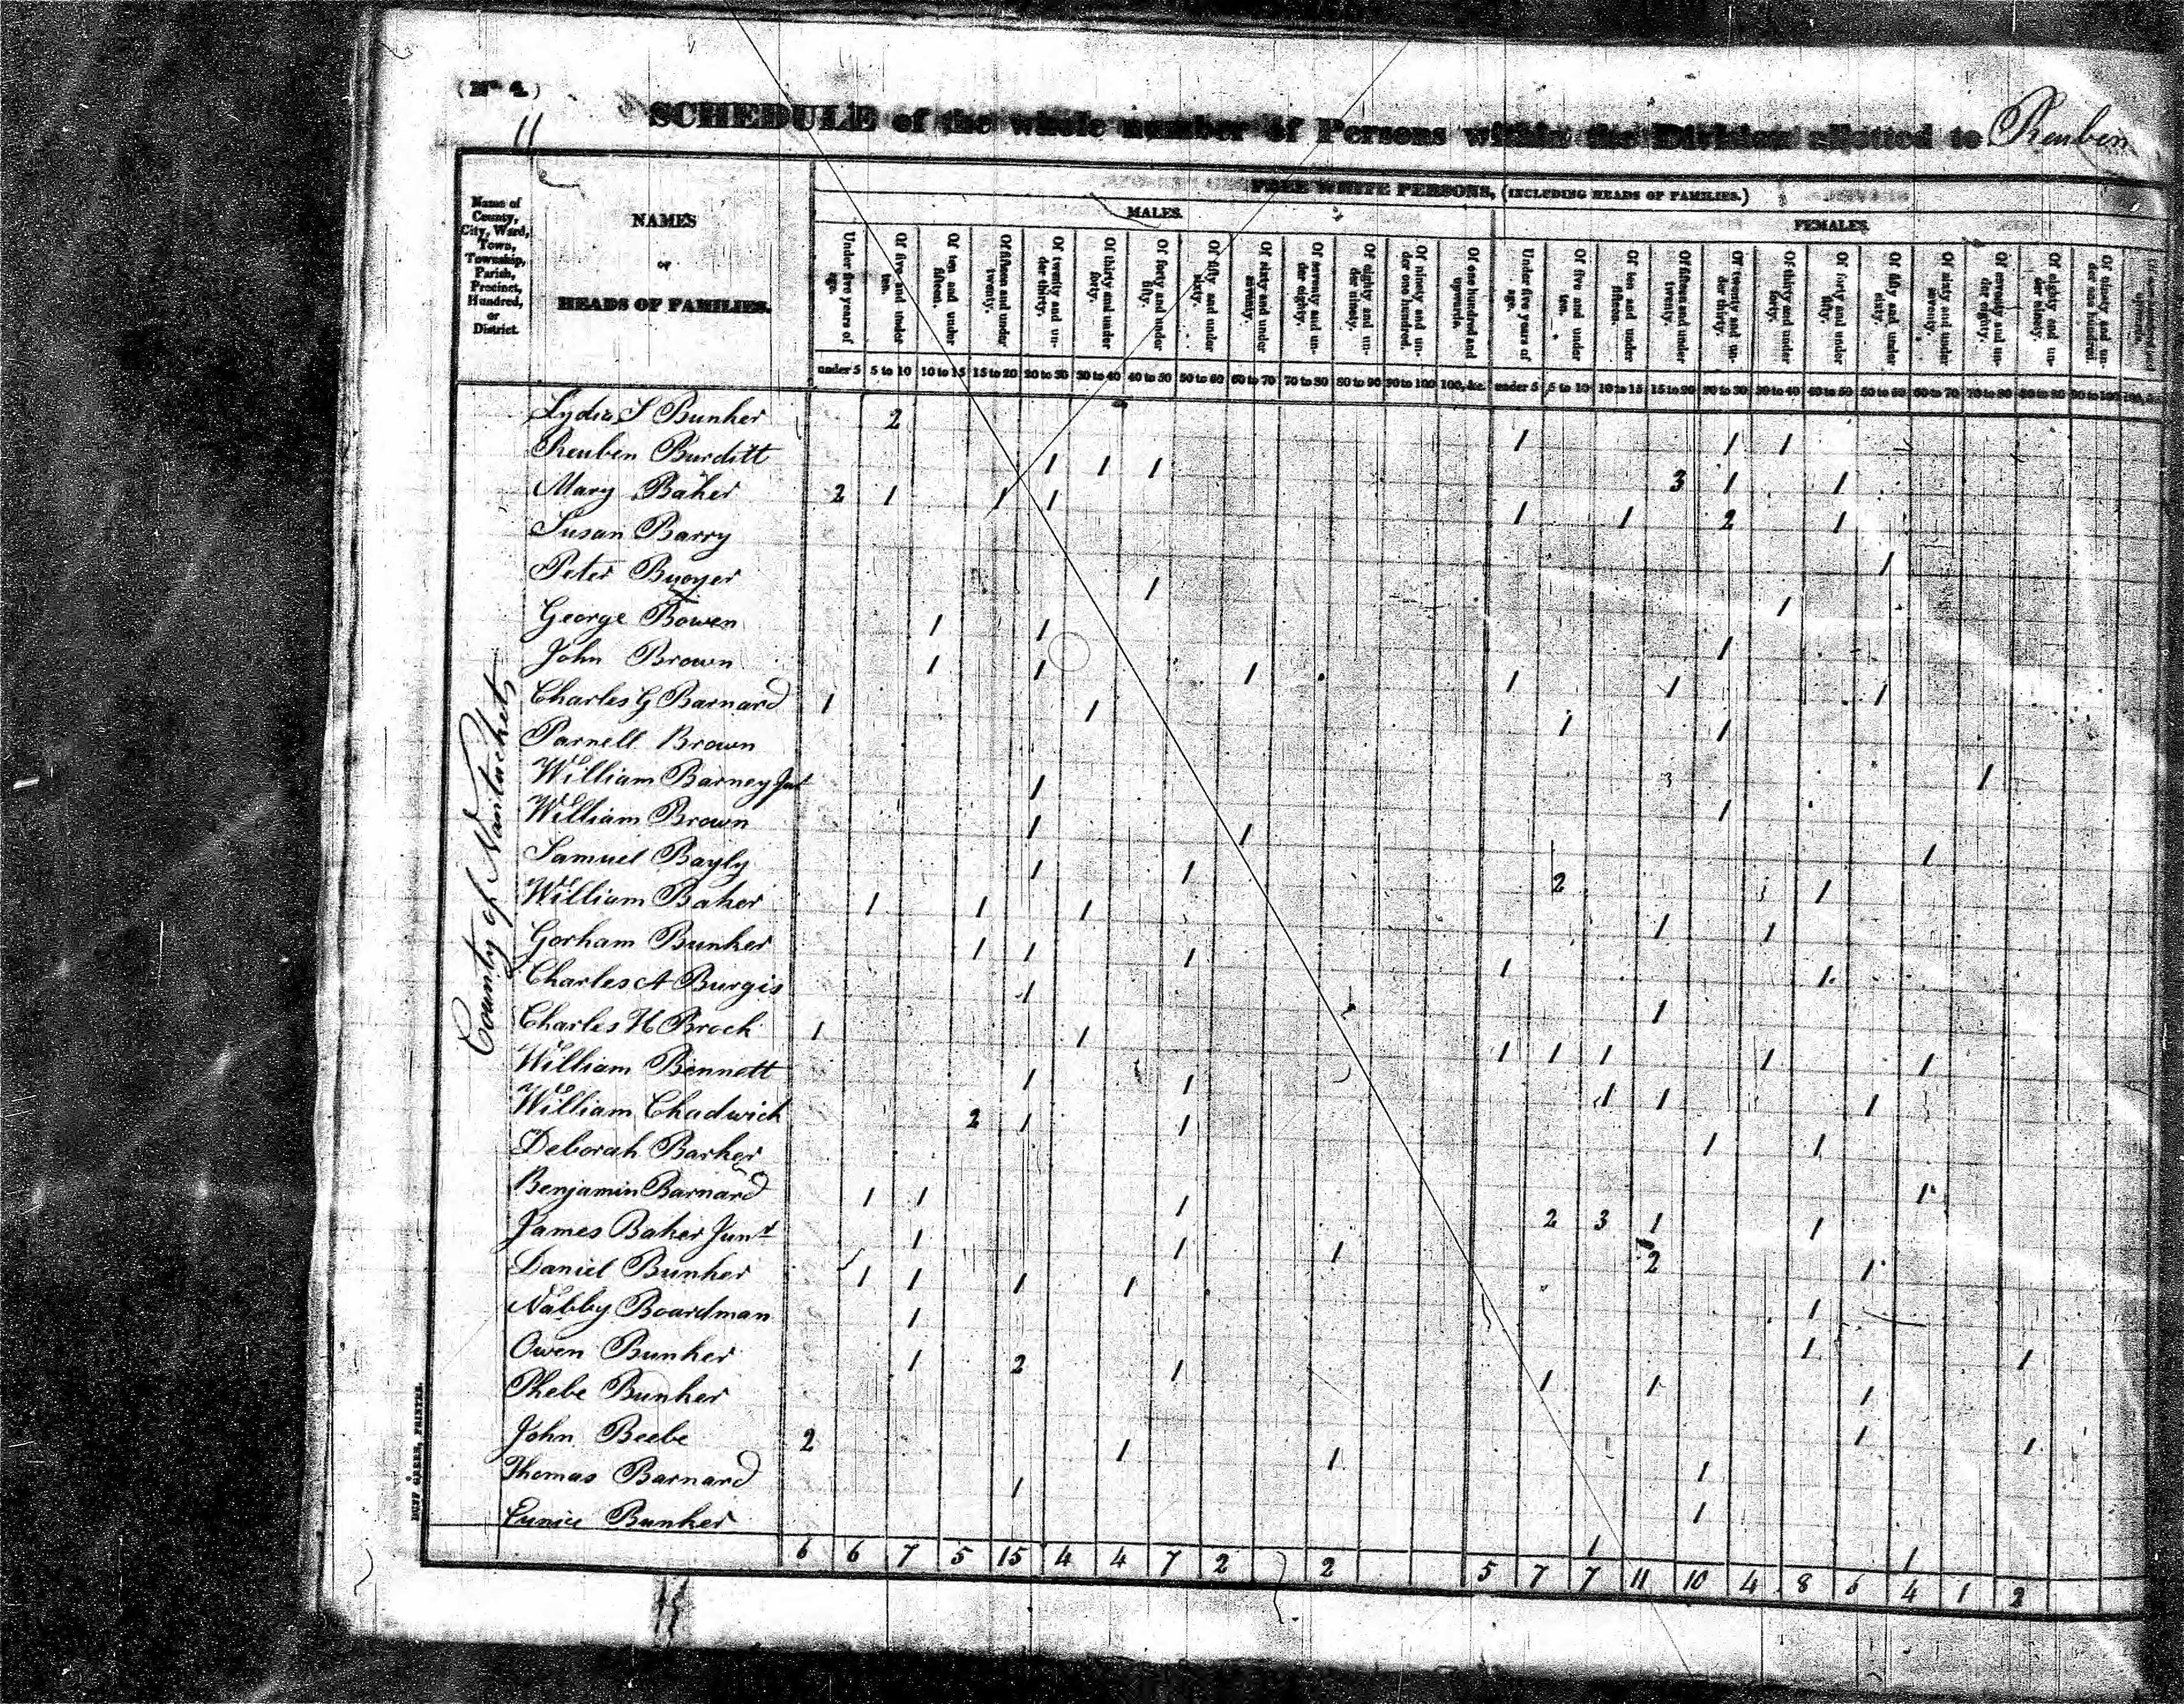 (No 4.)
11
SCHEDULE of the whole number of Persons within the Division allotted to Reuben
Name of County, City, Ward, Town, Township, Parish, Precinct, Hundred, or District.
NAMES
OF
HEADS OF FAMILIES.
FREE WHITE PERSONS, (INCLUDING HEADS OF FAMILIES.)
MALES.
FEMALES.
Under five years of age.
Of five and under ten.
Of ten and under fifteen.
Of fifteen and under twenty.
Of twenty and under thirty.
Of thirty and under forty.
Of forty and under fifty.
Of fifty and under sixty.
Of sixty and under seventy.
Of seventy and under eighty.
Of eighty and under ninety.
Of ninety and under one hundred.
Of one hundred and upwards.
Under five years of age.
Of five and under ten.
Of ten and under fifteen.
Of fifteen and under twenty.
Of twenty and under thirty.
Of thirty and under forty.
Of forty and under fifty.
Of fifty and under sixty.
Of sixty and under seventy.
Of seventy and under eighty.
Of eighty and under ninety.
Of ninety and under one hundred.
under 5 5 to 10 10 to 15 15 to 20 20 to 30 30 to 40 40 to 50 50 to 60 60 to 70 70 to 80 80 to 90 90 to 100 100, &c. under 5 5 to 10 10 to 15 15 to 20 20 to 30 30 to 40 40 to 50 50 to 60 60 to 70 70 to 80 80 to 90 90 to 100 100, &c.
County of Nantucket
Lydia S Bunker 2 1 1 1
Reuben Burditt 1 1 1 3 1 1
Mary Baker 2 1 1 1 1 1 2 1
Susan Barry 1
Peter Buoyer 1 1
George Bowen 1 1 1
John Brown 1 1 1 1 1 1
Charles G Barnard 1 1 1 1
Parnell Brown 1
William Barney Jur 1 1
William Brown 1 1 1
Samuel Bayly 1 1 2 1
William Baker 1 1 1 1 1
Gorham Bunker 1 1 1 1 1
Charles A Burgis 1 1
Charles H Brock 1 1 1 1 1 1 1
William Bennett 1 1 1 1 1
William Chadwick 2 1 1 1 1
Deborah Barker 1
Benjamin Barnard 1 1 1 2 3 1 1
James Baker Junr 1 1 1 2 1
Daniel Bunker 1 1 1 1 1
Nabby Boardman 1 1 1
Owen Bunker 1 2 1 1 1 1
Phebe Bunker 1 1
John Beebe 2 1 1 1
Thomas Barnard 1 1
Eunice Bunker 1 1
6 6 7 5 15 4 4 7 2 2 5 7 7 11 10 4 8 6 4 1 2
DUFF GREEN, PRINTER.